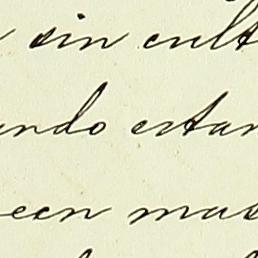 sin cult
ando estan
een mas